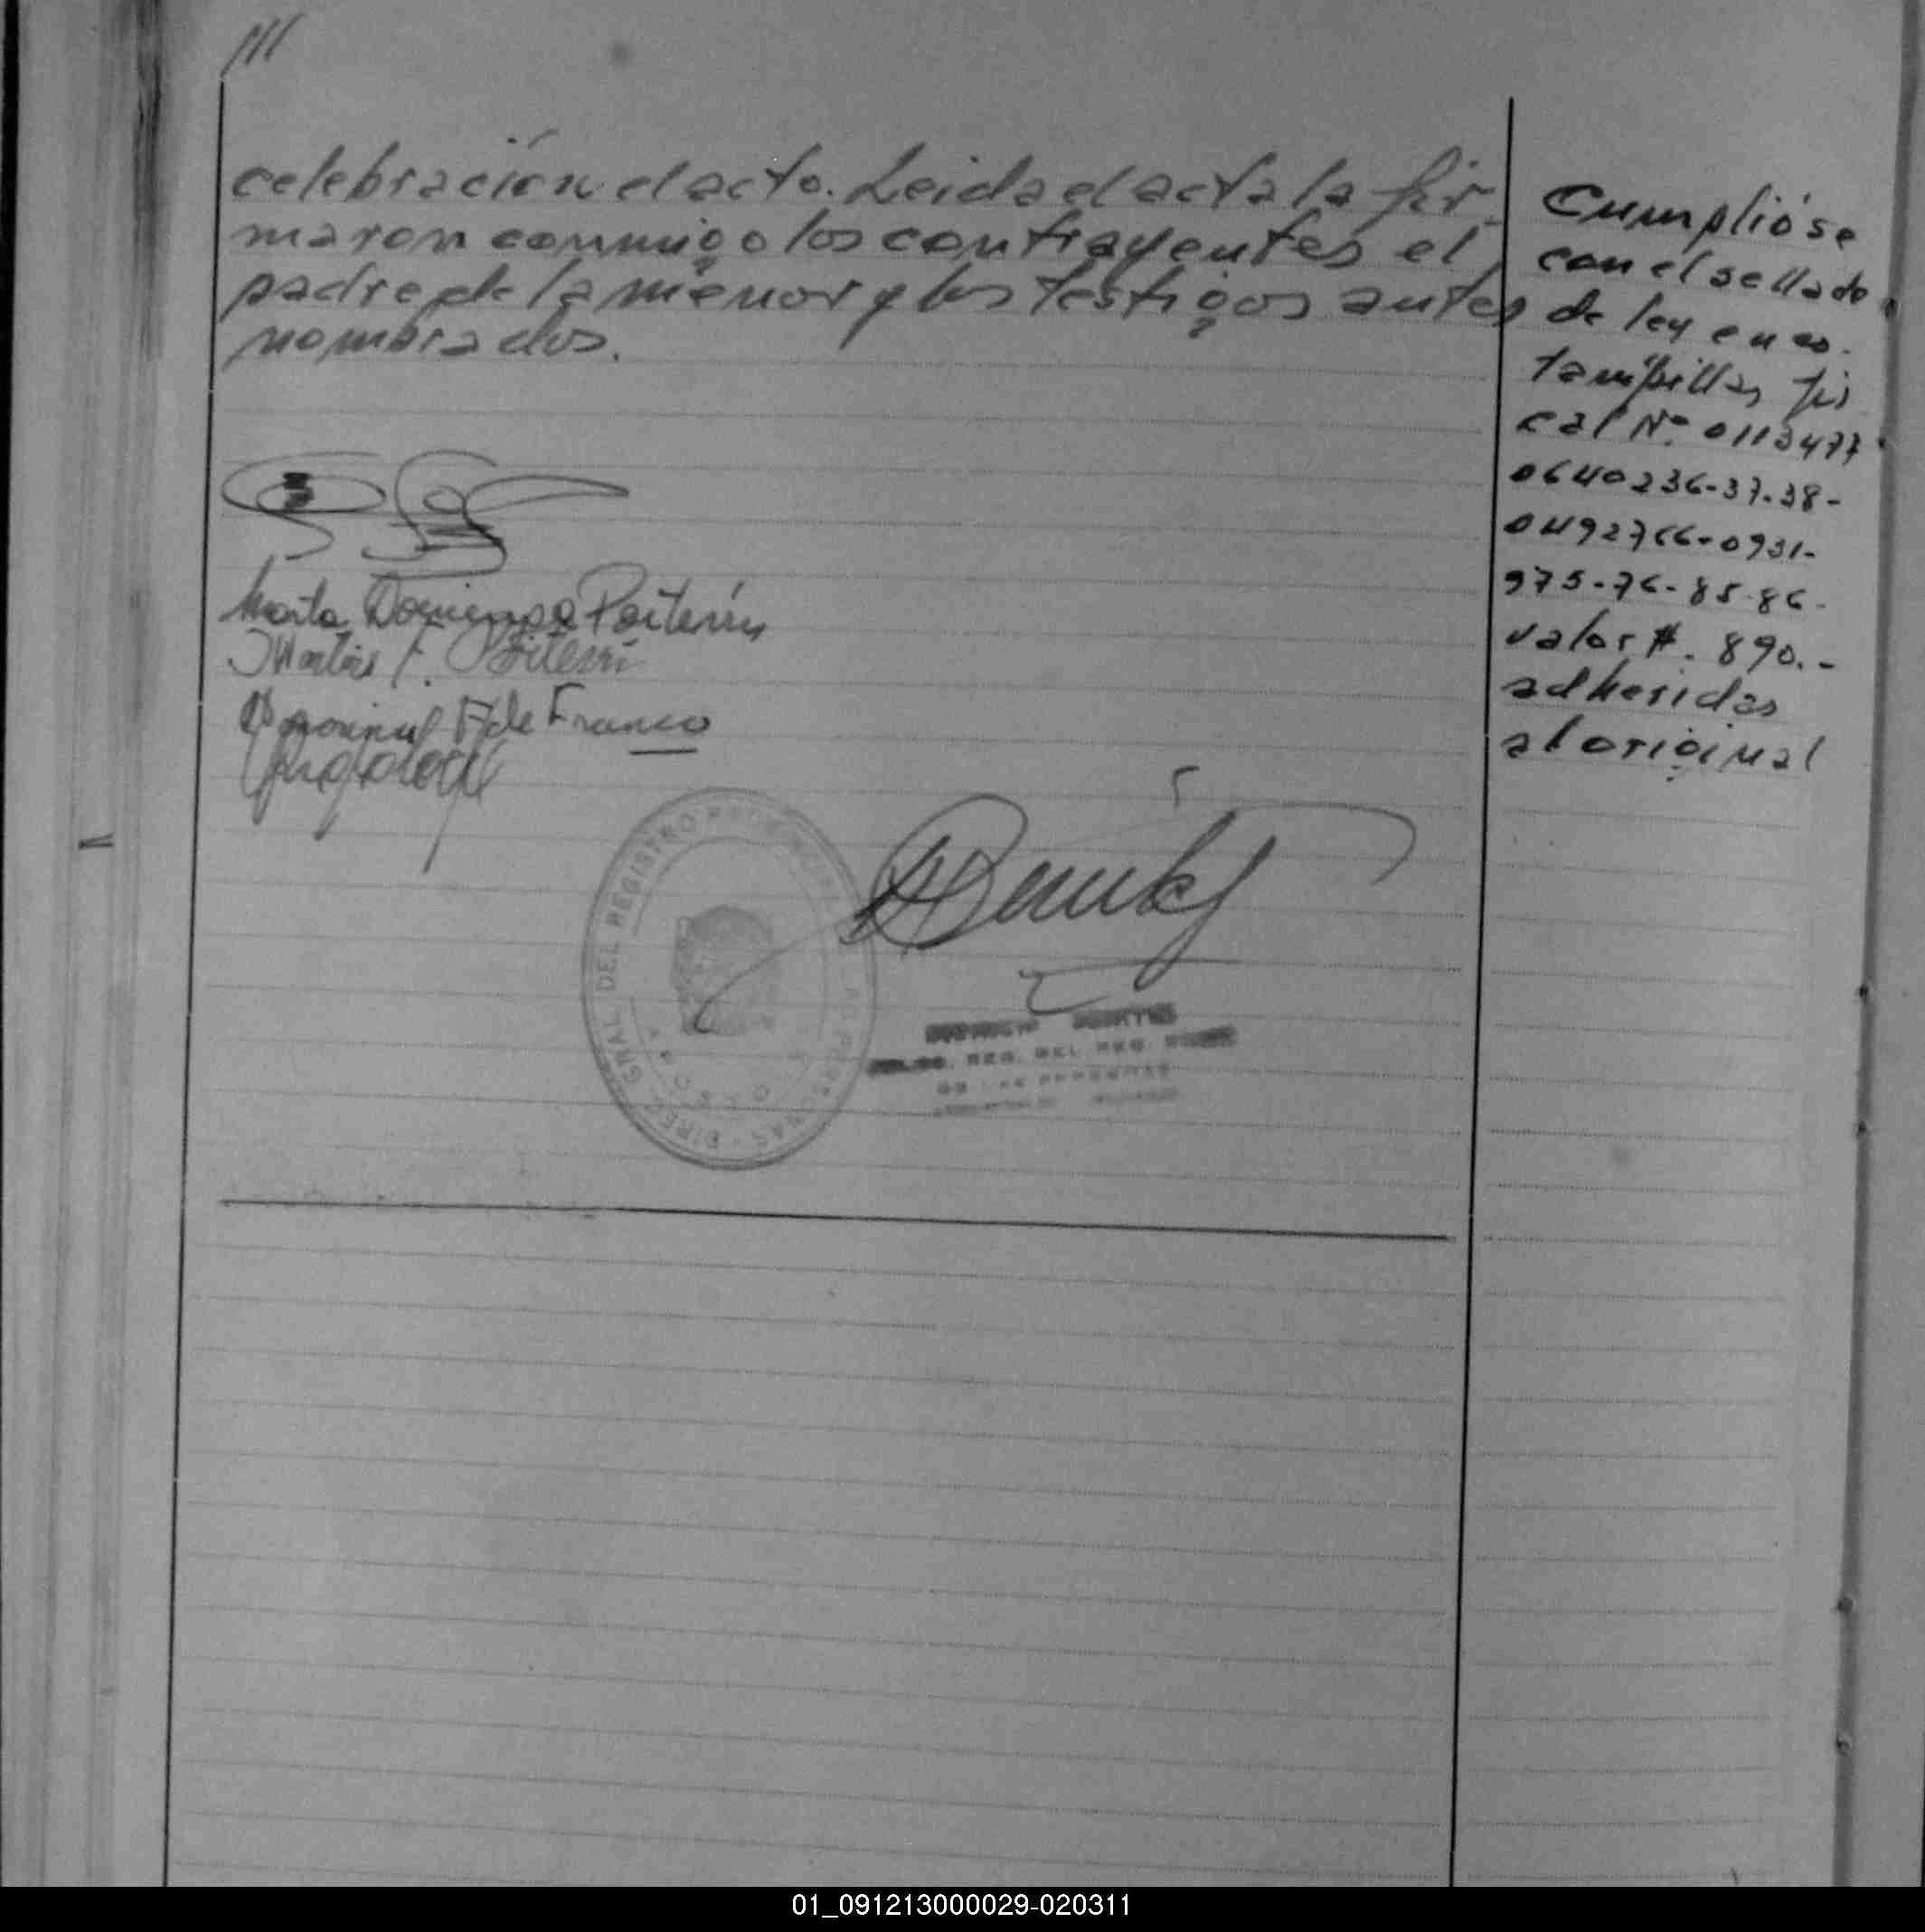 ///
celebración el acto. Leida el acta la fir-
maron conmigo los contrayentes el
padre de la menor y los testigos antes
nombrados.
Marta Dominga Poiterin
F.
F de Franco
DIREC. GRAL DEL REGISTRO
PERSONAS
REG. DEL REG.
DE LAS PERSONAS
Cumplióse
con el sellado
de ley en es-
tampillas fis
cal Nº 0113477
0640236-37-38-
0492766-0931-
975-76-85-86-
valor $. 890.-
adheridas
al original
01_091213000029-020311